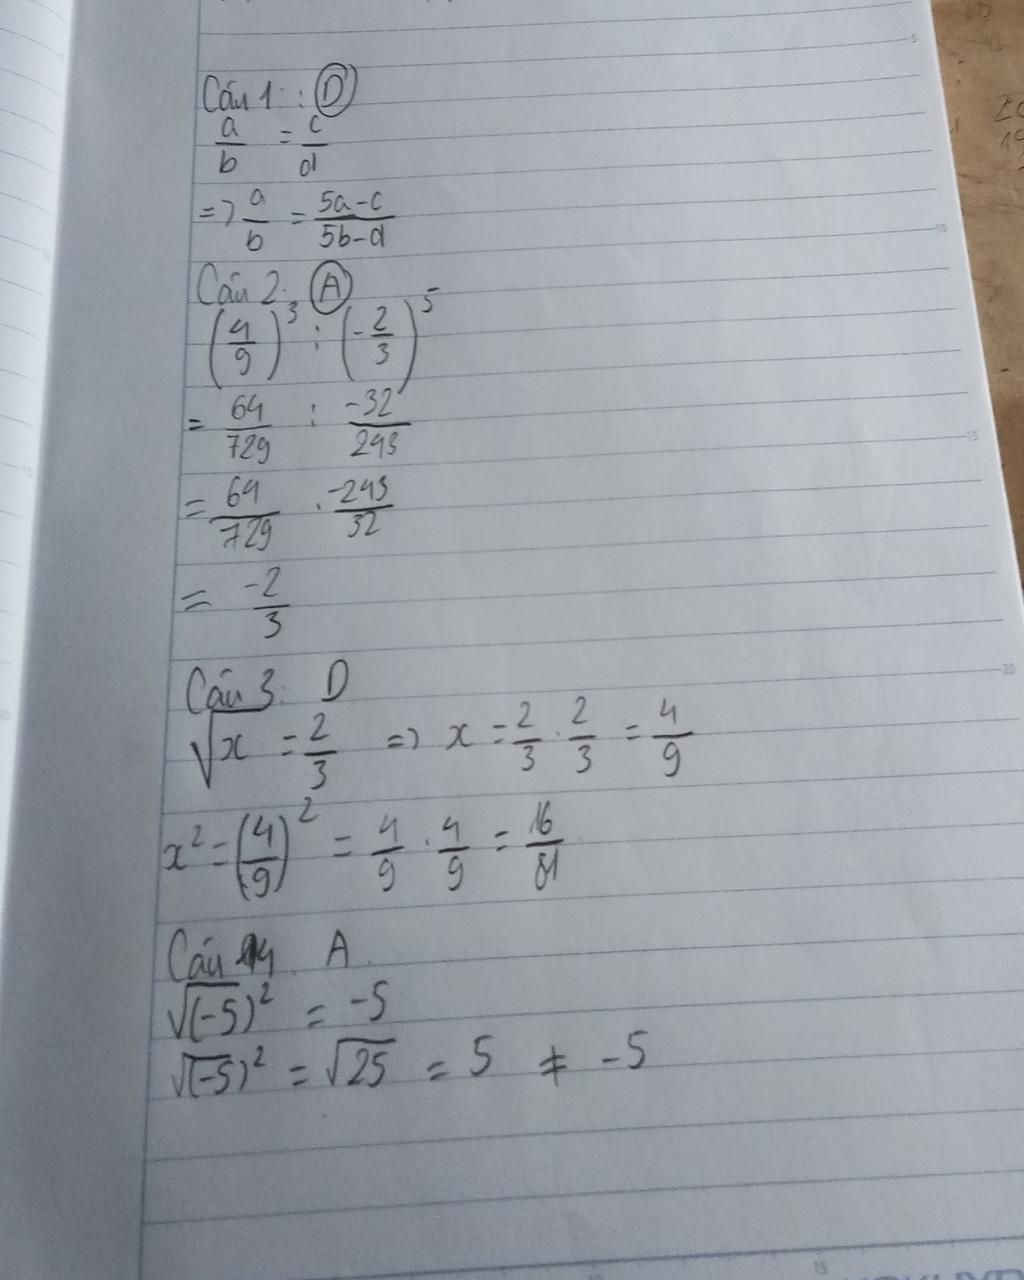 Câu 1: : D
a/b = c/d
=> a/b = (5a-c)/(5b-d)
Câu 2: A
(4/9)^3 : (-2/3)^5
= 64/729 : -32/243
= 64/729 . -243/32
= -2/3
Câu 3: D
√x = 2/3 => x = 2/3 . 2/3 = 4/9
x² = (4/9)² = 4/9 . 4/9 = 16/81
Câu 4. A.
√(-5)² = -5
√(-5)² = √25 = 5 ≠ -5
5
10
15
20
15